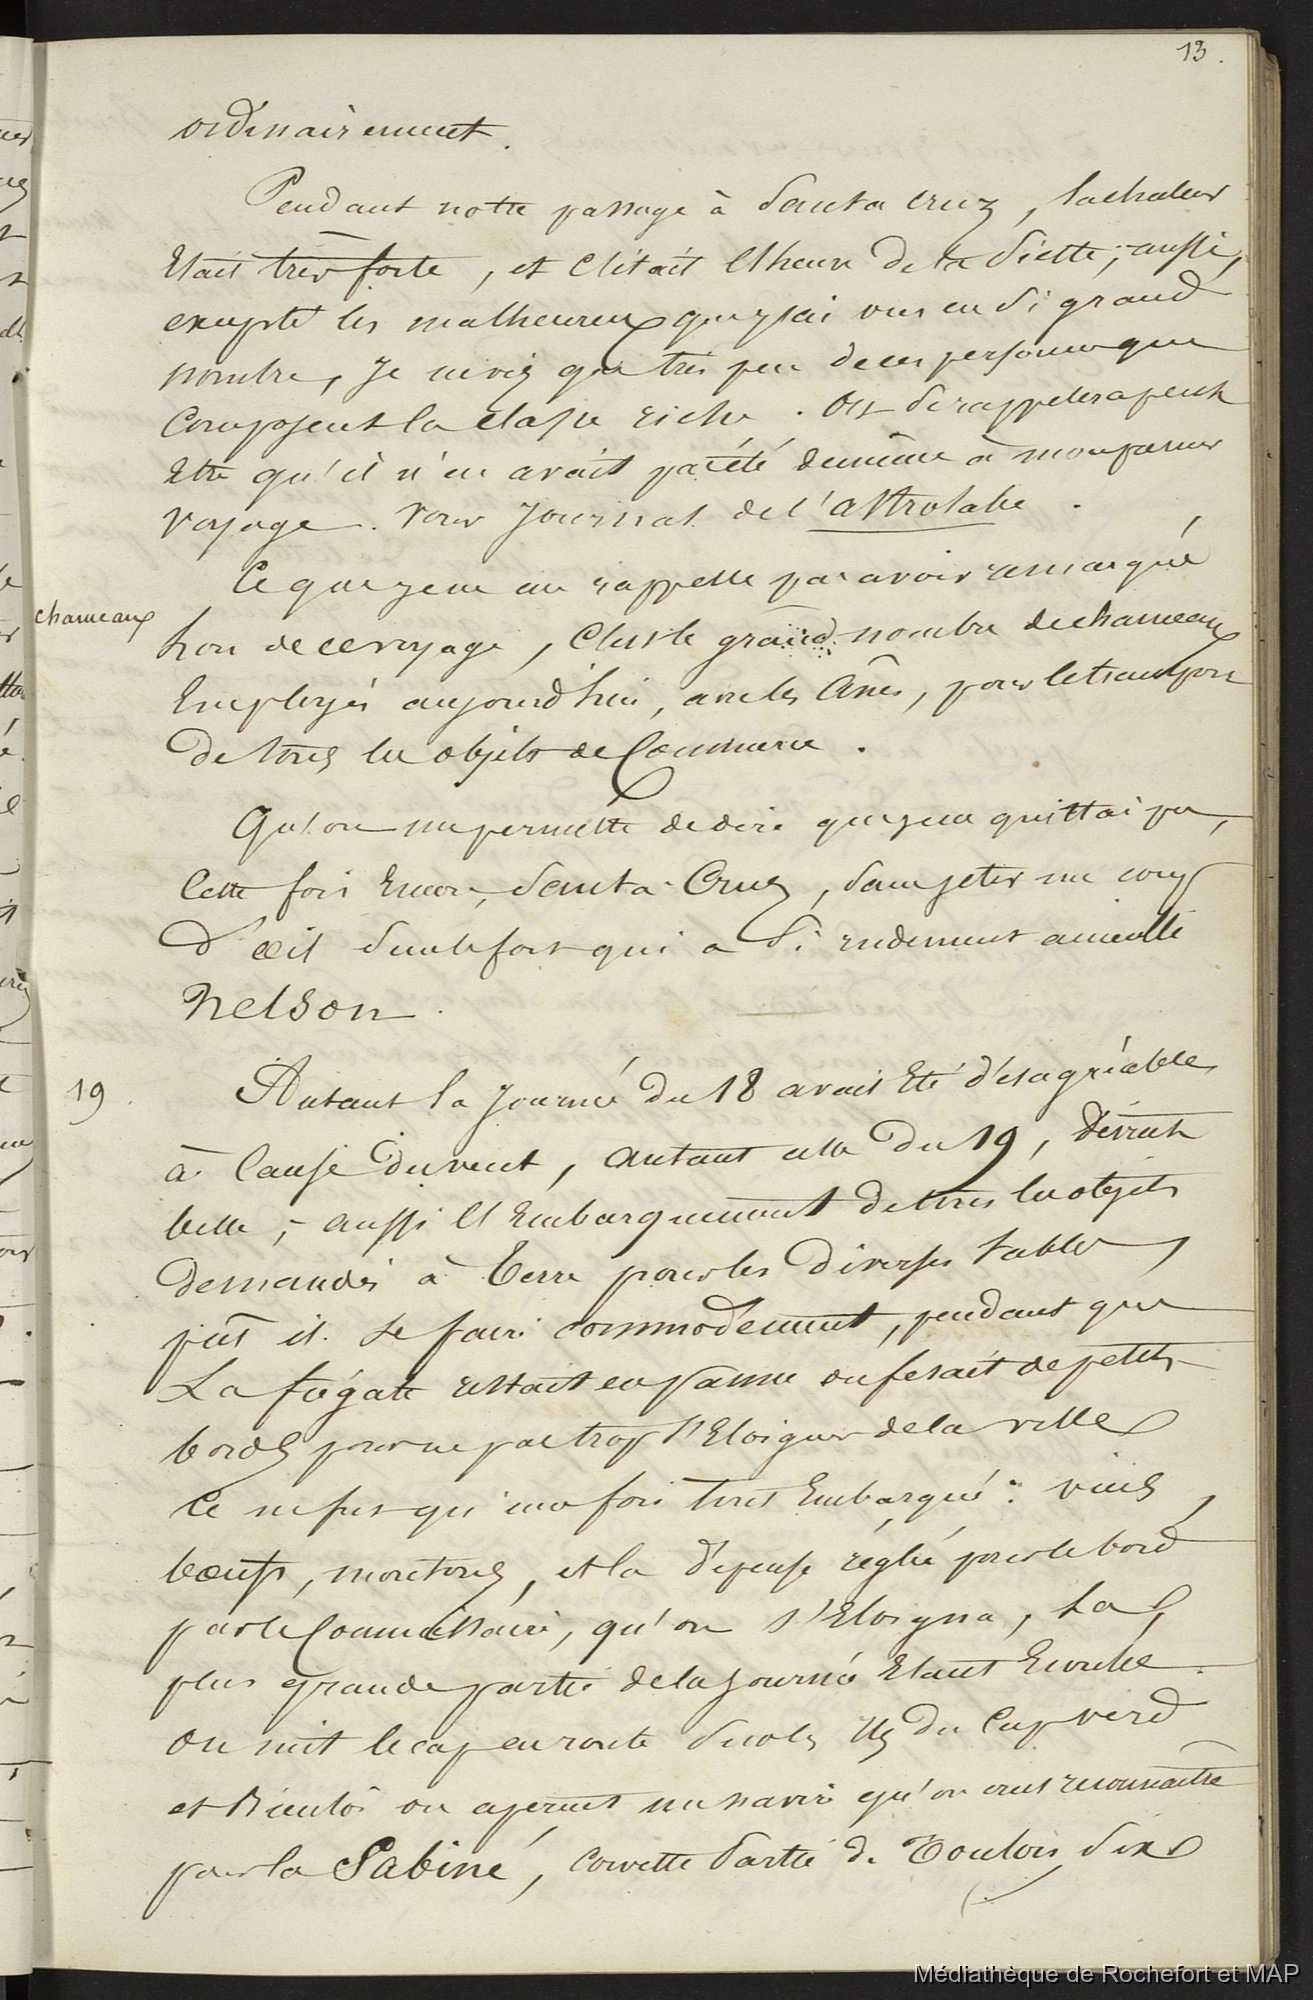 13.
ordinairement.
Pendant notre passage à Santa Cruz, la chaleur
Etait très forte, et C'était l'heure de la Sieste; aussi,
excepté les malheureux que j'ai vus en Si grand
nombre, Je ne vis que très peu de ces personnes que
Composent la classe riche. On Se rappelera peut
Etre qu'il n'en avait pas été de même à mon premier
voyage. Voir Journal de l'astrolabe.
Ce que je ne me rappelle pas avoir remarqué
chameaux
hors de ce voyage, C'est le grand nombre de chameaux
Employés aujourd'hui, avec les ânes, pour le transport
de tous les objets de Commerce.
Qu'on me permette de dire que je ne quittai pas,
Cette fois Encore, Santa-Cruz, sans jeter un coup
d'œil Sur le fort qui a Si rudement accueilli
Nelson.
19.
Autant la Journée du 18 avait Eté désagréable,
à Cause du vent, autant celle du 19, devint
belle; - aussi l'Embarquement de tous les objets
demandés à terre pour les diverses tables,
put il Se faire commodément, pendant que
La frégate restait en panne ou fesait de petits
bords pour ne pas trop s'Eloigner de la ville
Ce ne fut qu'une fois tout Embarqué: vins,
bœufs, moutons, et la dépense réglée pour le bord
par le Commissaire, qu'on s'Eloigna, la
plus grande partie de la journée Etant Ecoulée.
On mit le cap en route Sur les Iles du Cap verd
et Bientôt on aperçut un navire qu'on crut reconnaitre
pour la Sabine, corvette partie de Toulon dix
Médiathèque de Rochefort et MAP